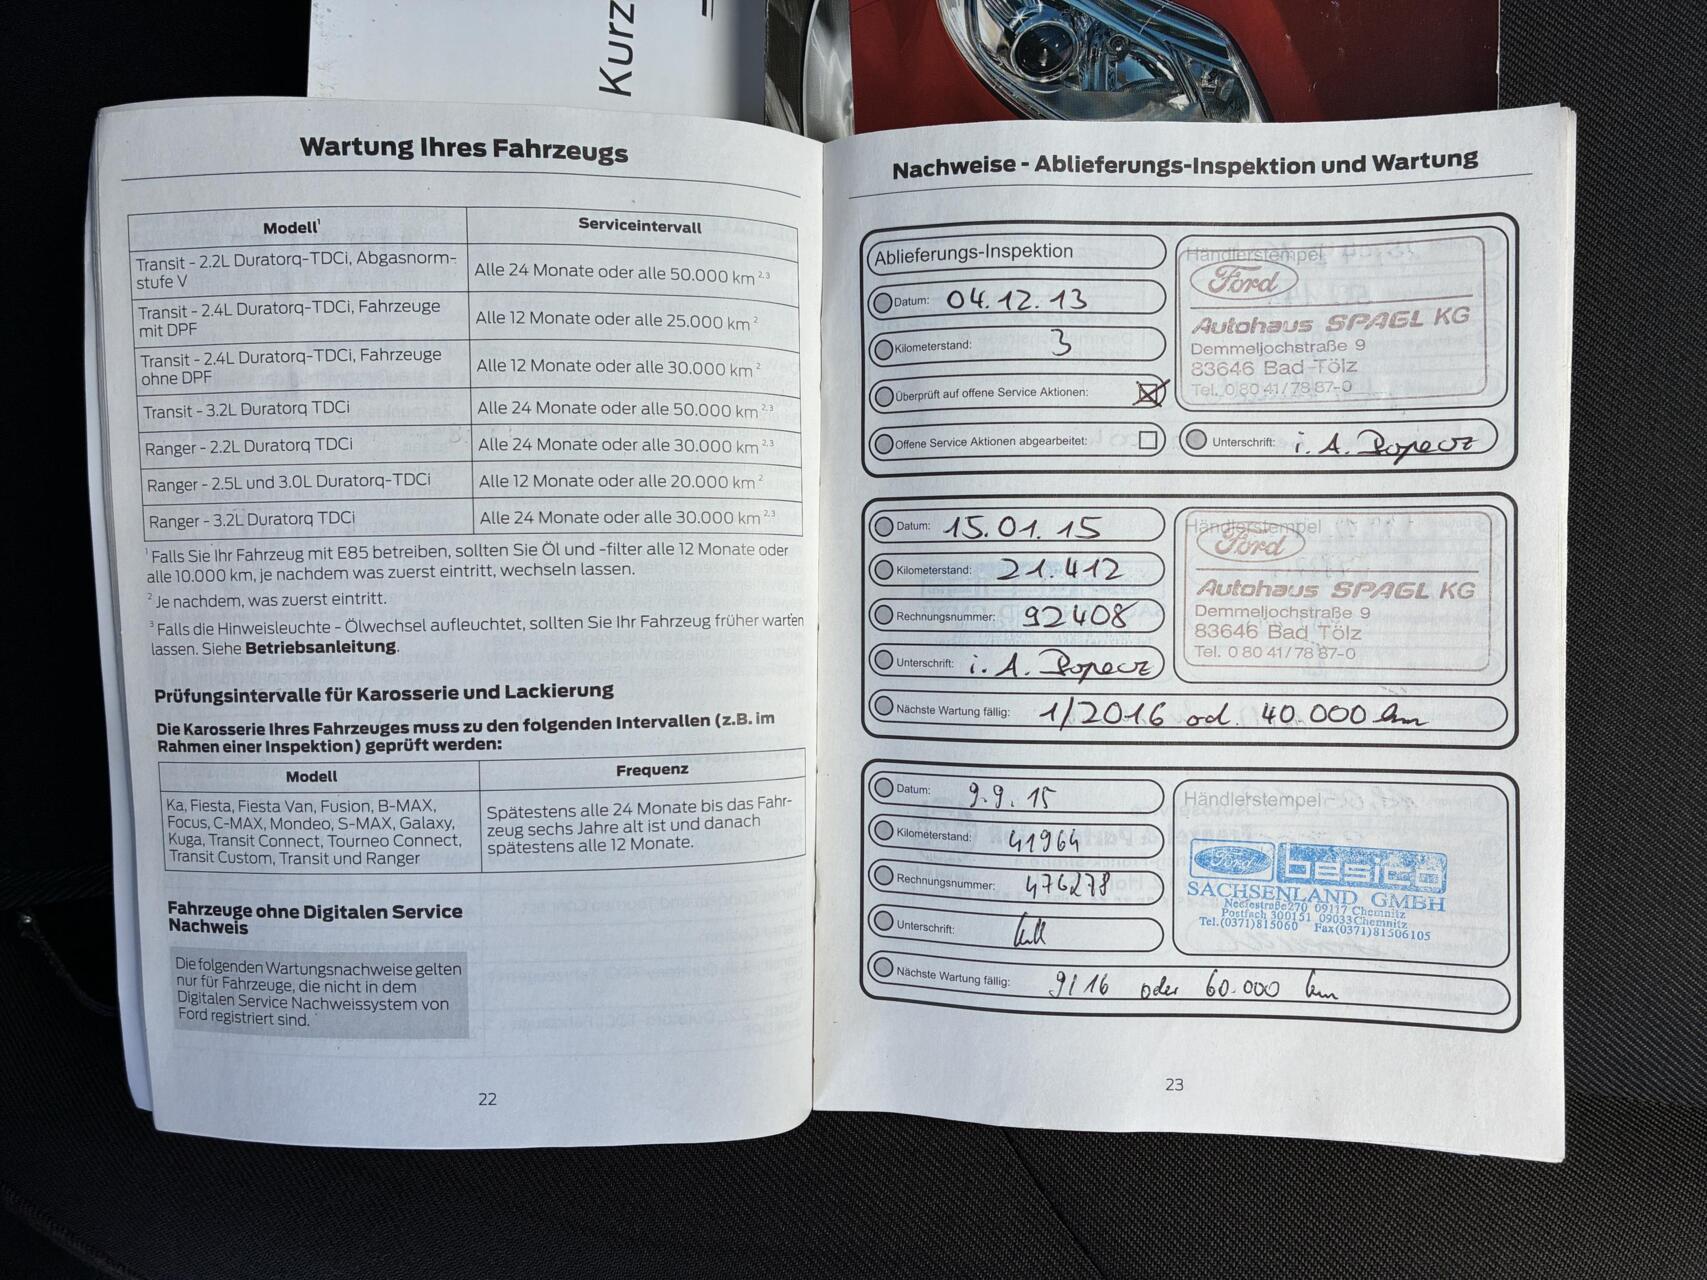 Kurz
Wartung Ihres Fahrzeugs
Modell¹ Serviceintervall
Transit - 2.2L Duratorq-TDCi, Abgasnorm-
stufe V
Alle 24 Monate oder alle 50.000 km ²,³
Transit - 2.4L Duratorq-TDCi, Fahrzeuge
mit DPF
Alle 12 Monate oder alle 25.000 km ²
Transit - 2.4L Duratorq-TDCi, Fahrzeuge
ohne DPF
Alle 12 Monate oder alle 30.000 km ²
Transit - 3.2L Duratorq TDCi Alle 24 Monate oder alle 50.000 km ²,³
Ranger - 2.2L Duratorq TDCi Alle 24 Monate oder alle 30.000 km ²,³
Ranger - 2.5L und 3.0L Duratorq-TDCi Alle 12 Monate oder alle 20.000 km ²
Ranger - 3.2L Duratorq TDCi Alle 24 Monate oder alle 30.000 km ²,³
¹ Falls Sie Ihr Fahrzeug mit E85 betreiben, sollten Sie Öl und -filter alle 12 Monate oder
alle 10.000 km, je nachdem was zuerst eintritt, wechseln lassen.
² Je nachdem, was zuerst eintritt.
³ Falls die Hinweisleuchte - Ölwechsel aufleuchtet, sollten Sie Ihr Fahrzeug früher warten
lassen. Siehe Betriebsanleitung.
Prüfungsintervalle für Karosserie und Lackierung
Die Karosserie Ihres Fahrzeuges muss zu den folgenden Intervallen (z.B. im
Rahmen einer Inspektion) geprüft werden:
Modell Frequenz
Ka, Fiesta, Fiesta Van, Fusion, B-MAX,
Focus, C-MAX, Mondeo, S-MAX, Galaxy,
Kuga, Transit Connect, Tourneo Connect,
Transit Custom, Transit und Ranger
Spätestens alle 24 Monate bis das Fahr-
zeug sechs Jahre alt ist und danach
spätestens alle 12 Monate.
Fahrzeuge ohne Digitalen Service
Nachweis
Die folgenden Wartungsnachweise gelten
nur für Fahrzeuge, die nicht in dem
Digitalen Service Nachweissystem von
Ford registriert sind.
22
Nachweise - Ablieferungs-Inspektion und Wartung
Ablieferungs-Inspektion
Datum: 04.12.13
Kilometerstand: 3
Überprüft auf offene Service Aktionen:
Offene Service Aktionen abgearbeitet:
Händlerstempel
Ford
Autohaus SPAGL KG
Demmeljochstraße 9
83646 Bad Tölz
Tel. 0 80 41/78 87-0
Unterschrift: i. A.
Datum: 15.01.15
Kilometerstand: 21.412
Rechnungsnummer: 92408
Unterschrift: i. A.
Händlerstempel
Ford
Autohaus SPAGL KG
Demmeljochstraße 9
83646 Bad Tölz
Tel. 0 80 41/78 87-0
Nächste Wartung fällig: 1/2016 od. 40.000 km
Datum: 9.9.15
Kilometerstand: 41964
Rechnungsnummer: 476278
Unterschrift:
Händlerstempel
Ford besico
SACHSENLAND GMBH
Neefestraße 270 09117 Chemnitz
Postfach 300151 09033 Chemnitz
Tel.(0371)815060 Fax(0371)81506105
Nächste Wartung fällig: 9/16 oder 60.000 km
23